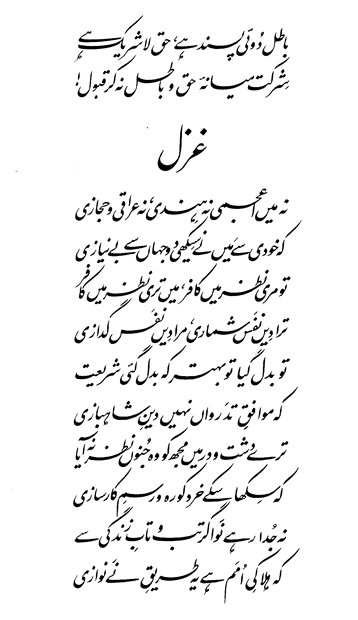 باطل دُوئی پسند ہے، حق لا شریک ہے
شرکت میانۂ حق و باطل نہ کر قبول!
غزل
نہ میں اعجمی نہ ہندی، نہ عراقی و حجازی
کہ خودی سے میں نے سیکھی دوجہاں سے بے نیازی
تو مری نظر میں کافر، میں تری نظر میں کافر
ترا دیں نفَس شماری، مرا دیں نفَس گدازی
تو بدل گیا تو بہتر کہ بدل گئی شریعت
کہ موافقِ تدَرواں نہیں دینِ شاہبازی
ترے دشت و در میں مجھ کو وہ جُنوں نظر نہ آیا
کہ سِکھا سکے خرد کو رہ و رسمِ کارسازی
نہ جُدا رہے نوا گر تب و تابِ زندگی سے
کہ ہلاکیِ اُمَم ہے یہ طریقِ نَے نوازی